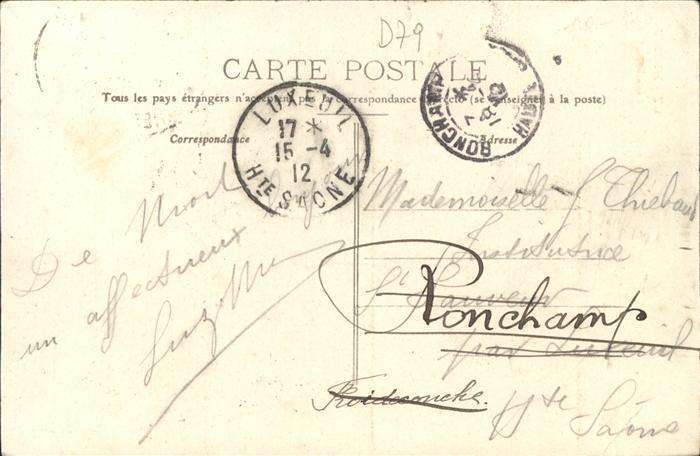 D79
CARTE POSTALE
Tous les pays étrangers n'acceptent pas la correspondance au recto (se renseigner à la poste)
Correspondance
Adresse
LUXEUIL
17 *
15 -4
12
HTE SAONE
RONCHAMP
HAUTE
De Niort
un affectueux
Mademoiselle J Thiébaud
Institutrice
St Sauveur
Ronchamp
par Luxeuil
Froideconche
Hte Saône